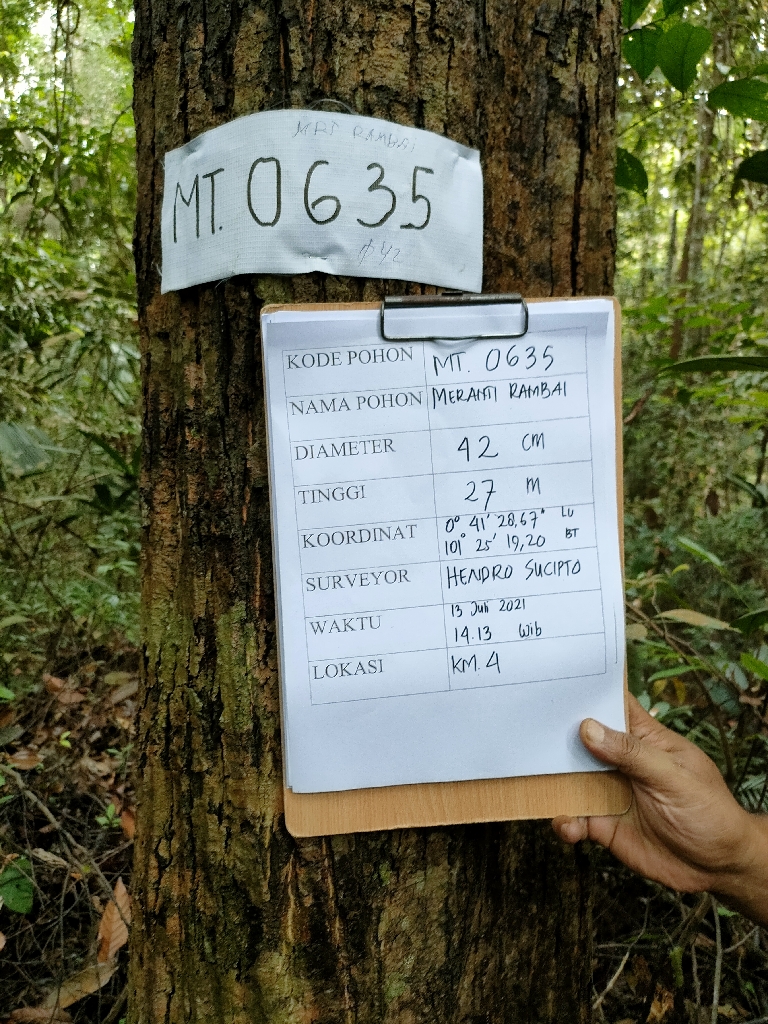 MRT RAMBAI
MT. 0635
φ 42
KODE POHON MT. 0635
NAMA POHON MERANTI RAMBAI
DIAMETER 42 CM
TINGGI 27 M
KOORDINAT 0° 41' 28,67" LU
101° 25' 19,20 BT
SURVEYOR HENDRO SUCIPTO
WAKTU 13 Juli 2021
14.13 Wib
LOKASI KM. 4